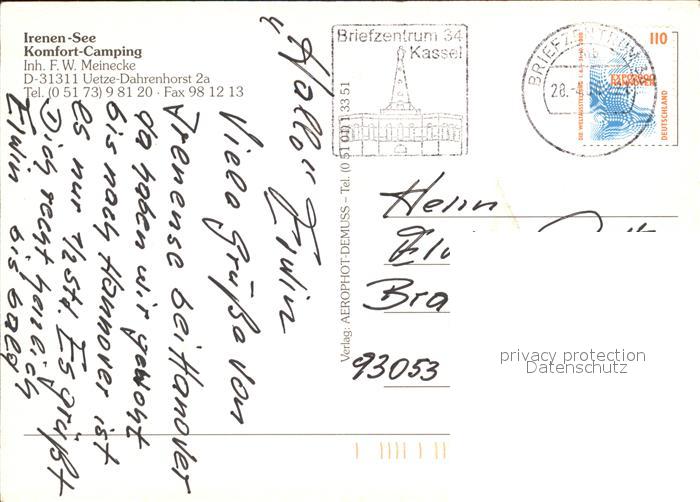 Irenen-See
Komfort-Camping
Inh. F. W. Meinecke
D-31311 Uetze-Dahrenhorst 2a
Tel. (0 51 73) 9 81 20 · Fax 98 12 13
Hallo Erwin
Viele Grüße von
Irenensee bei Hanover
da haben wir gewohnt
bis nach Hannover ist
es nur 1/2 Std. Es grüßt
Dich recht herzlich
Erwin bis bald
Verlag: AEROPHOT-DEMUSS – Tel. (0 51 01) 1 33 51
Briefzentrum 34
Kassel
BRIEFZENTRUM
28.
110
DEUTSCHLAND
DIE WELTAUSSTELLUNG
Herrn
Bra
93053
privacy protection
Datenschutz